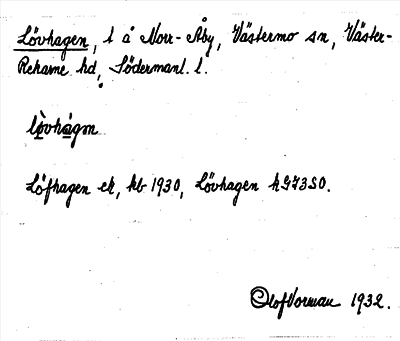 Lövhagen, t å Norr-Åby, Västermo sn, Väster-
Rekarne hd, Södermanl. l.
lø̀vhágɔn
Löfhagen ek, kb 1930, Lövhagen hG73S0.
Olof Norman 1932.